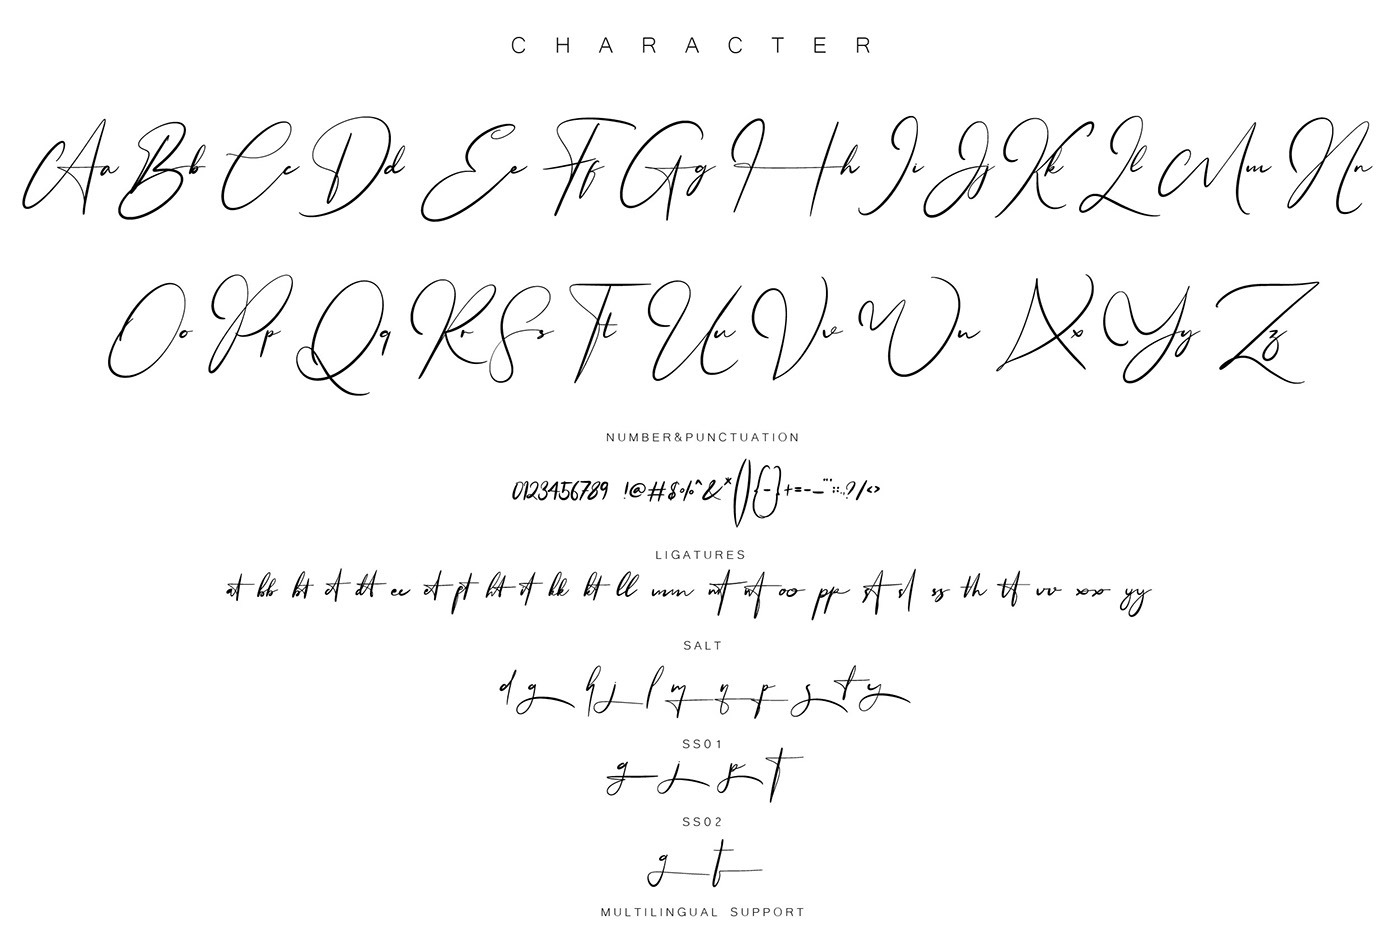 CHARACTER
Aa Bb Cc Dd Ee Ff Gg Hh Ii Jj Kk Ll Mm Nn
Oo Pp Qq Rr Ss Tt Uu Vv Ww Xx Yy Zz
NUMBER&PUNCTUATION
0123456789 !@#$%^&*(){-}+=-_
LIGATURES
at bb bt ct dt ee et pt ht it kk kt ll mm nt oo pp st sl ss th tt vv xx yy
SALT
d g h j l m n p s t y
SS01
g j p t
SS02
g t
MULTILINGUAL SUPPORT